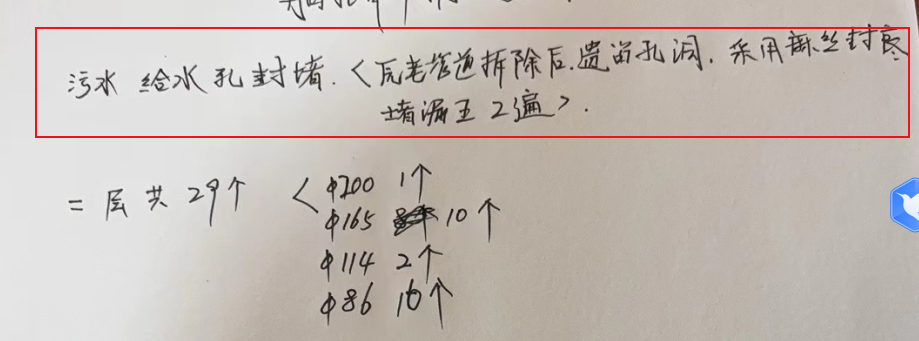 污水 给水 孔封堵.<瓦老管道拆除后.遗留孔洞.采用麻丝封塞
堵漏王 2遍>.
二层共 29个 < φ200 1个
φ165 10个
φ114 2个
φ86 16个